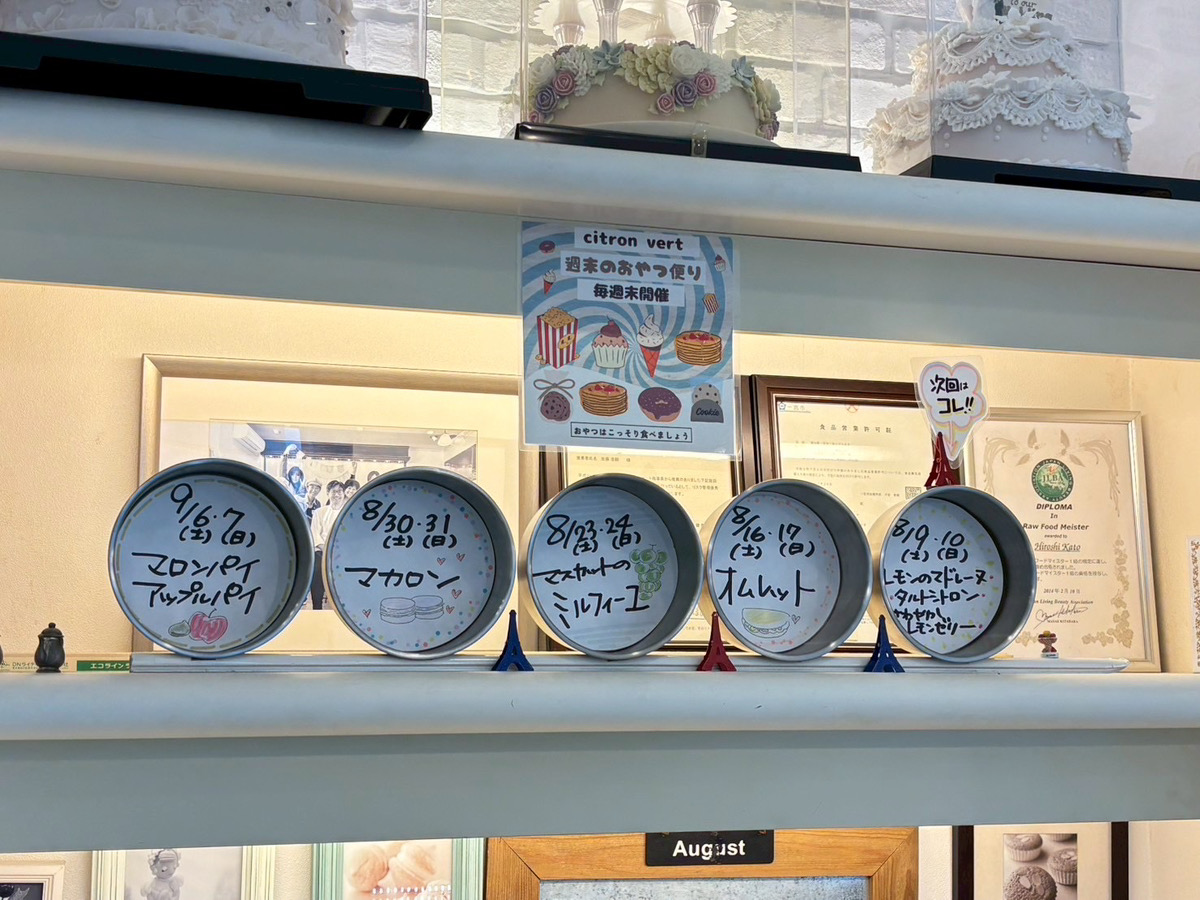 to our
citron vert
週末のおやつ便り
毎週末開催
Cookie
おやつはこっそり食べましょう
次回は
コレ!!
9/6・7
(土)(日)
マロンパイ
アップルパイ
8/30・31
(土)(日)
マカロン
8/23・24
(土)(日)
マスカットの
ミルフィーユ
8/16・17
(土)(日)
オムレット
8/9・10
(土)(日)
レモンのマドレーヌ・
タルトシトロン・
さわやか
レモンゼリー
食品営業許可証
DIPLOMA
In
Raw Food Meister
awarded to
Hiroshi Kato
2014年2月10日
Living Beauty Association
エコライン
August